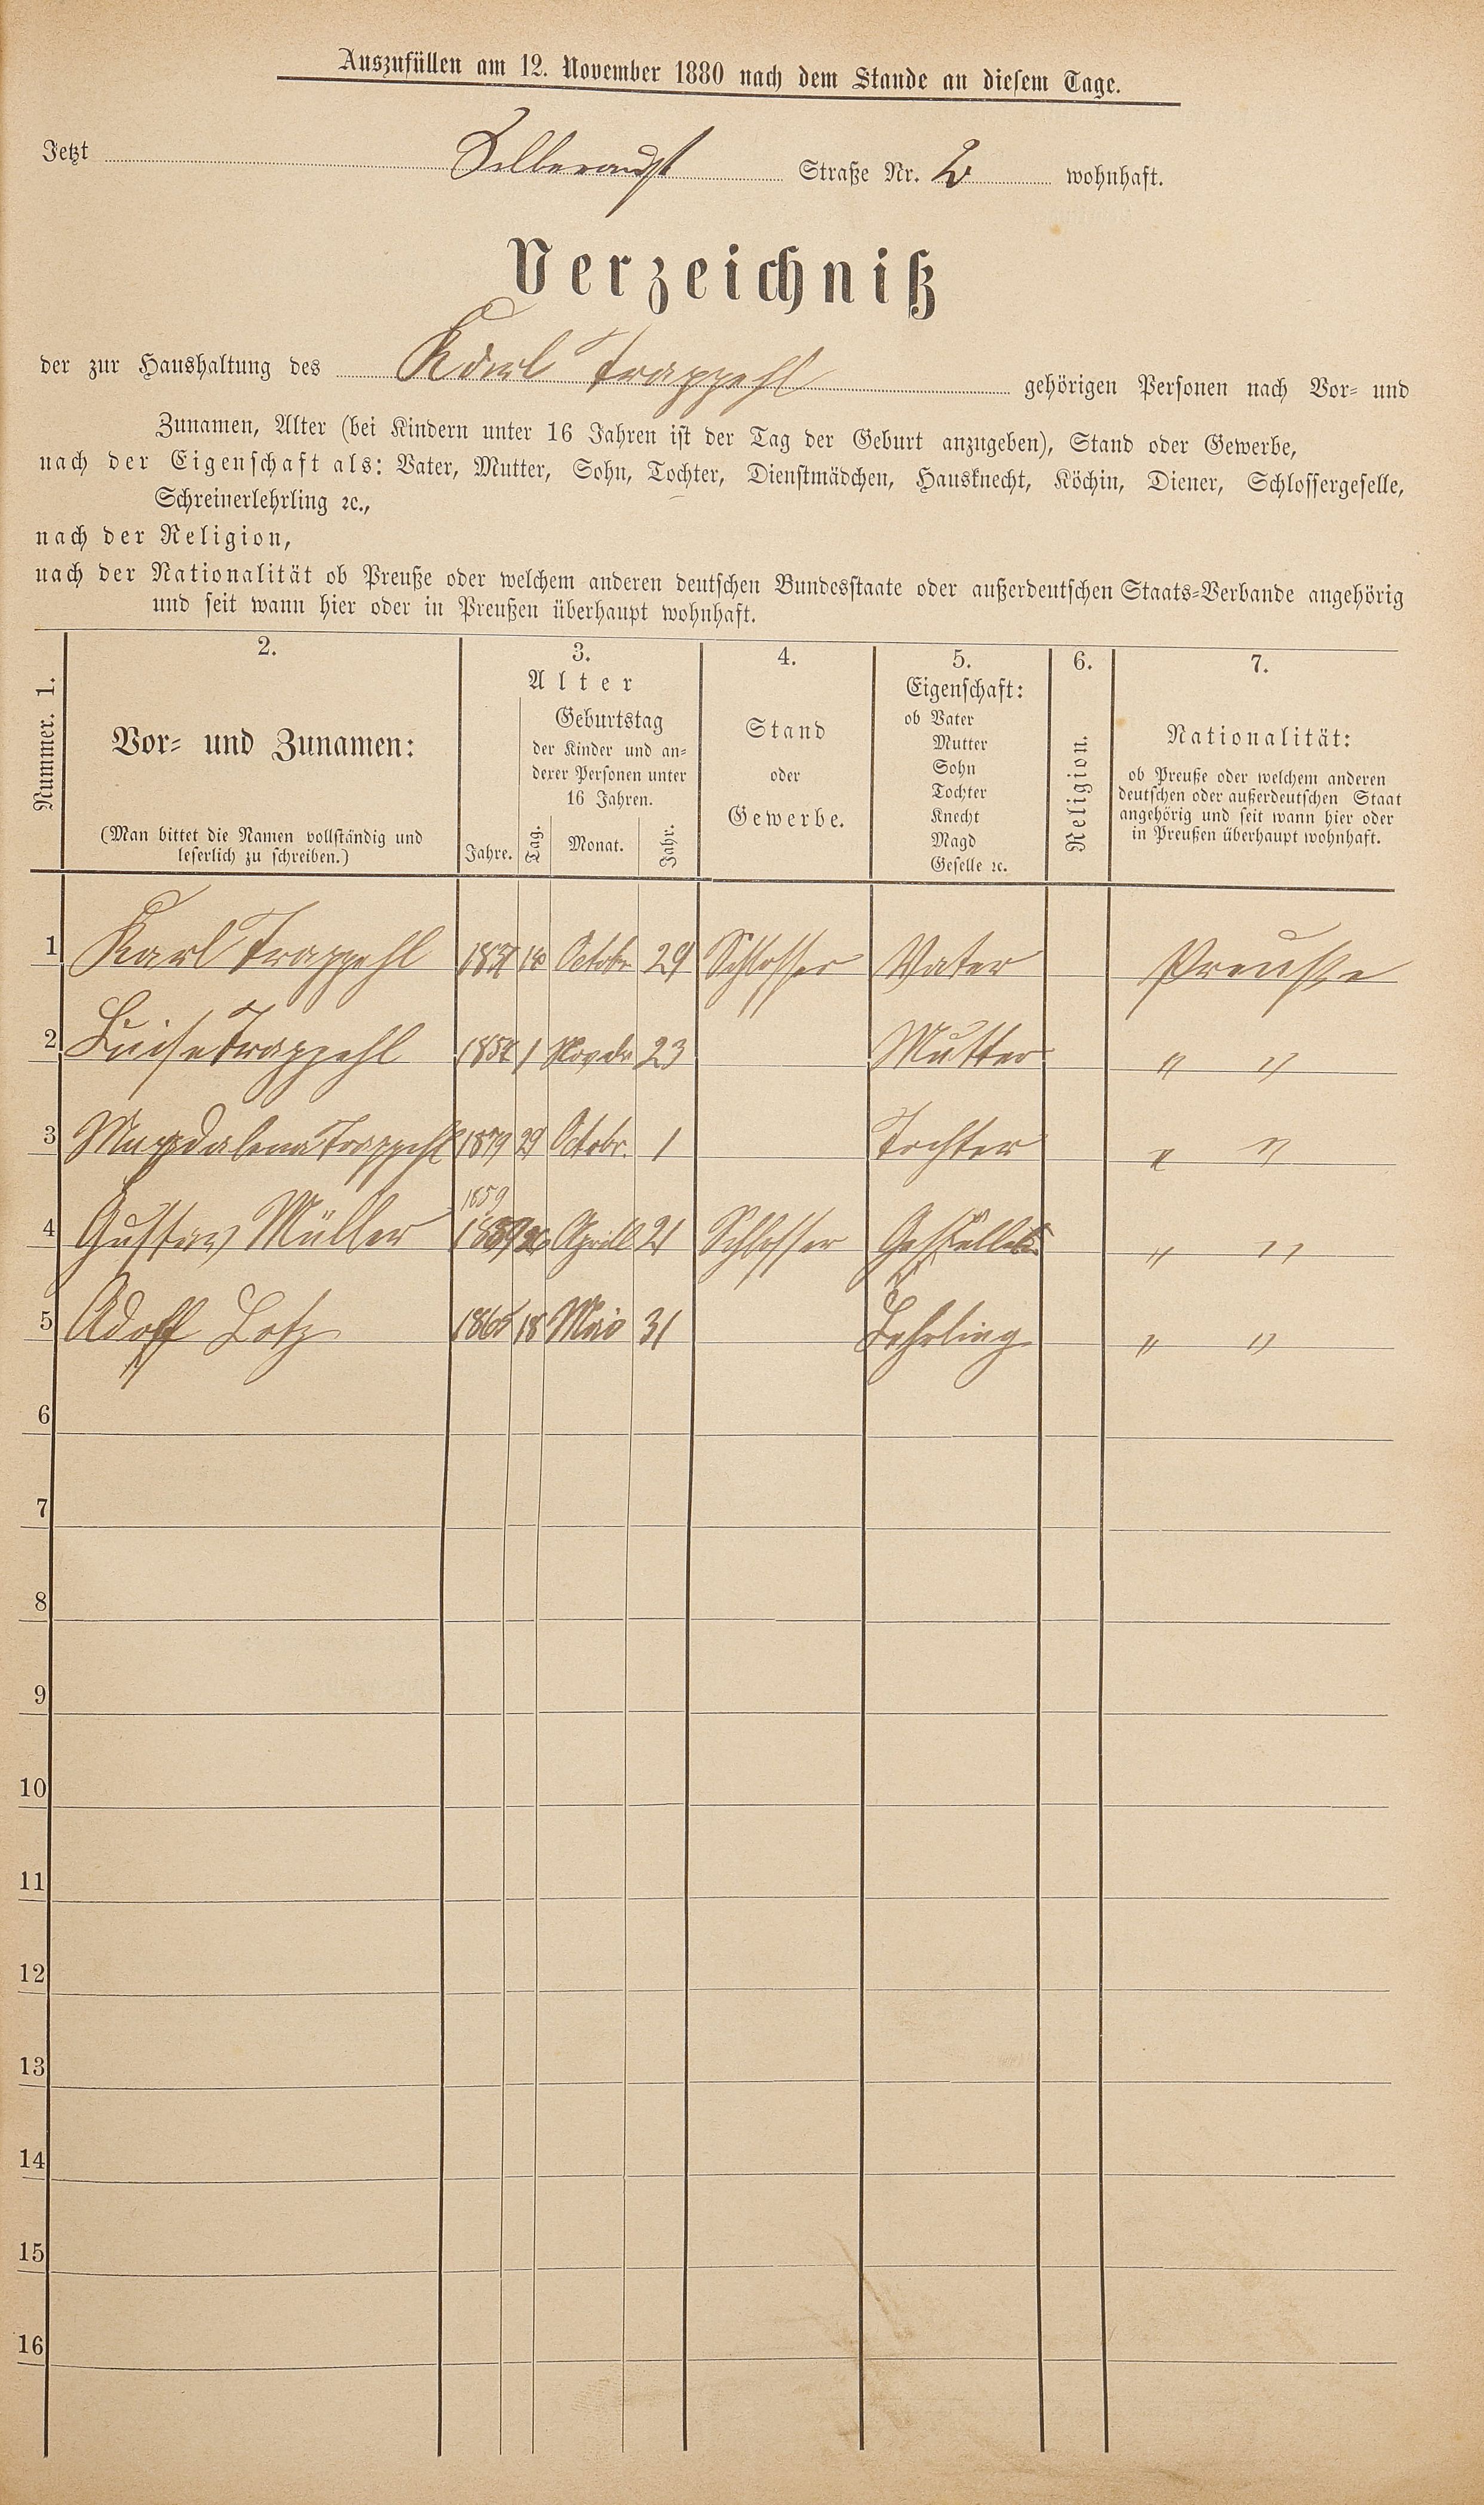 Auszufüllen am 12. November 1880 nach dem Stande an diesem Tage.
Jetzt Straße Nr. wohnhaft.
Verzeichniß
der zur Haushaltung des Karl Trappehl gehörigen Personen nach Vor- und
Zunamen, Alter (bei Kindern unter 16 Jahren ist der Tag der Geburt anzugeben), Stand oder Gewerbe,
nach der Eigenschaft als: Vater, Mutter, Sohn, Tochter, Dienstmädchen, Hausknecht, Köchin, Diener, Schlossergeselle,
Schreinerlehrling ꝛc.,
nach der Religion,
nach der Nationalität ob Preuße oder welchem anderen deutschen Bundesstaate oder außerdeutschen Staats-Verbande angehörig
und seit wann hier oder in Preußen überhaupt wohnhaft.
Nummer. 1.
2.
Vor- und Zunamen:
(Man bittet die Namen vollständig und
leserlich zu schreiben.)
3.
Alter
Geburtstag
der Kinder und an-
derer Personen unter
16 Jahren.
Jahre. Tag. Monat. Jahr.
4.
Stand
oder
Gewerbe.
5.
Eigenschaft:
ob Vater
Mutter
Sohn
Tochter
Knecht
Magd
Geselle ꝛc.
6.
Religion.
7.
Nationalität:
ob Preuße oder welchem anderen
deutschen oder außerdeutschen Staat
angehörig und seit wann hier oder
in Preußen überhaupt wohnhaft.
1 Karl Trappehl 18 Octobr 29 Schlosser Vater Preuße
2 Luise Trappehl 1 23 Mutter " "
3 Magdalena Trappehl 1879 29 Octobr. 1 Tochter " "
1859
4 Gustav Müller Aprill 21 Schlosser Geselle " "
5 Adolf Lotz 18 Mai 31 Lehrling " "
6
7
8
9
10
11
12
13
14
15
16